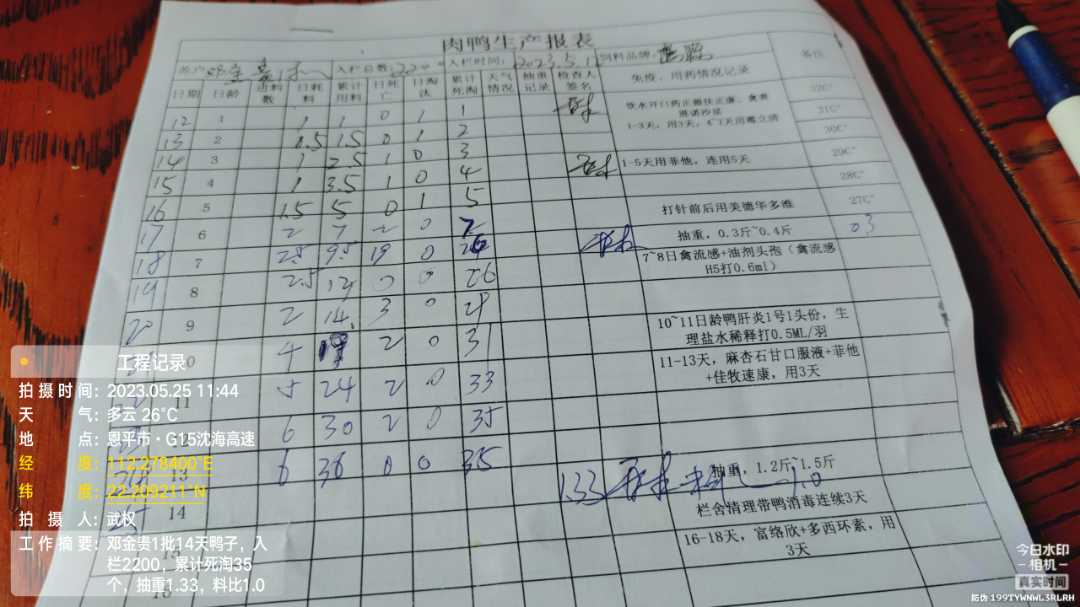 肉鸭生产报表
入栏总数：2200 入栏时间：2023.5.1 饲料品牌：
日期 日龄 进料数 日耗料 累计用料 日死亡 日淘汰 累计死淘 天气情况 抽重记录 检查人签名 免疫、用药情况记录 备注
32C°
12 1 1 1 0 1 1
1-3天，用3天，
31C°
13 2 0.5 1.5 0 1 2
30C°
14 3 1 2.5 1 0 3 1-5天用菲他，连用5天 29C°
15 4 1 3.5 1 0 4 28C°
16 5 1.5 5 0 1 5 打针前后用美德华多维 27C°
17 6 2 7 2 0 7 抽重，0.3斤~0.4斤 03
18 7 2.5 9.5 19 0 26 7~8日禽流感+油剂头孢（禽流感
H5打0.6ml）
19 8 2.5 12 0 0 26
20 9 2 14 3 0 29 10~11日龄鸭肝炎1号1头份，生
理盐水稀释打0.5ML/羽
10 4 2 0 31 11-13天，麻杏石甘口服液+菲他
+佳牧速康，用3天
11 5 24 2 0 33
6 30 2 0 35
13 6 36 0 0 35 抽重，1.2斤~1.5斤
1.33 1.0
14 栏舍清理带鸭消毒连续3天
16-18天，富络欣+多西环素，用
3天
工程记录
拍摄时间：2023.05.25 11:44
天 气：多云 26°C
地 点：恩平市·G15沈海高速
经 度：112.278400°E
纬 度：22.209211°N
拍 摄 人：武权
工作摘要：邓金贵1批14天鸭子，入
栏2200，累计死淘35
个，抽重1.33，料比1.0
今日水印
-相机-
真实时间
防伪 199TYWNWL3RLRH